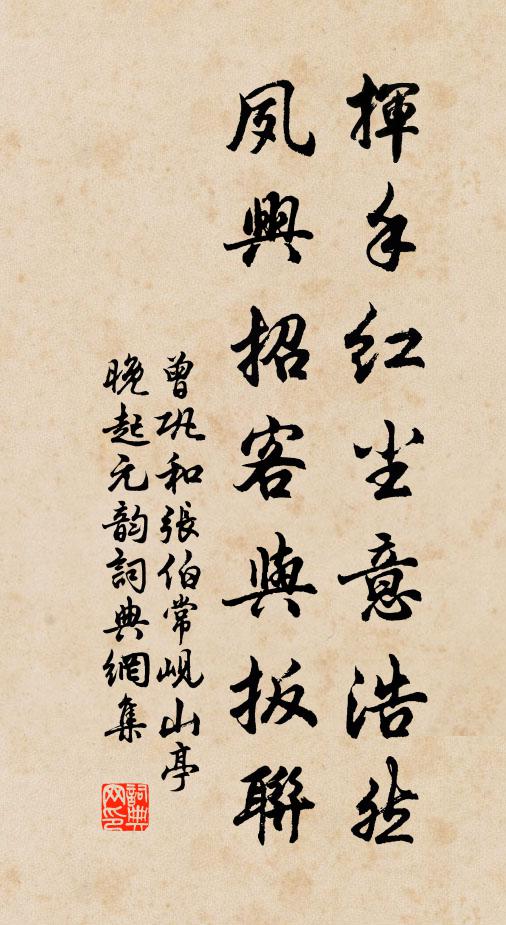 揮手紅尘意浩然
夙興招客與扳聯
曾巩和張伯常峴山亭
晚起元韵詞典網集
詞典网印